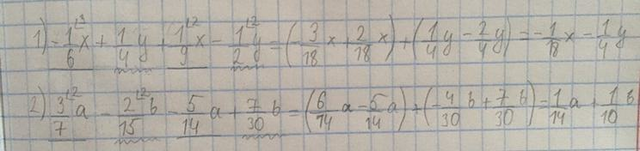 1) -1/6^{\3}x + 1/4y + 1/9^{\2}x - 1/2^{\2}y = (-3/18x + 2/18x) + (1/4y - 2/4y) = -1/18x - 1/4y
2) 3/7^{\2}a - 2/15^{\2}b - 5/14a + 7/30b = (6/14a - 5/14a) + (-4/30b + 7/30b) = 1/14a + 1/10b